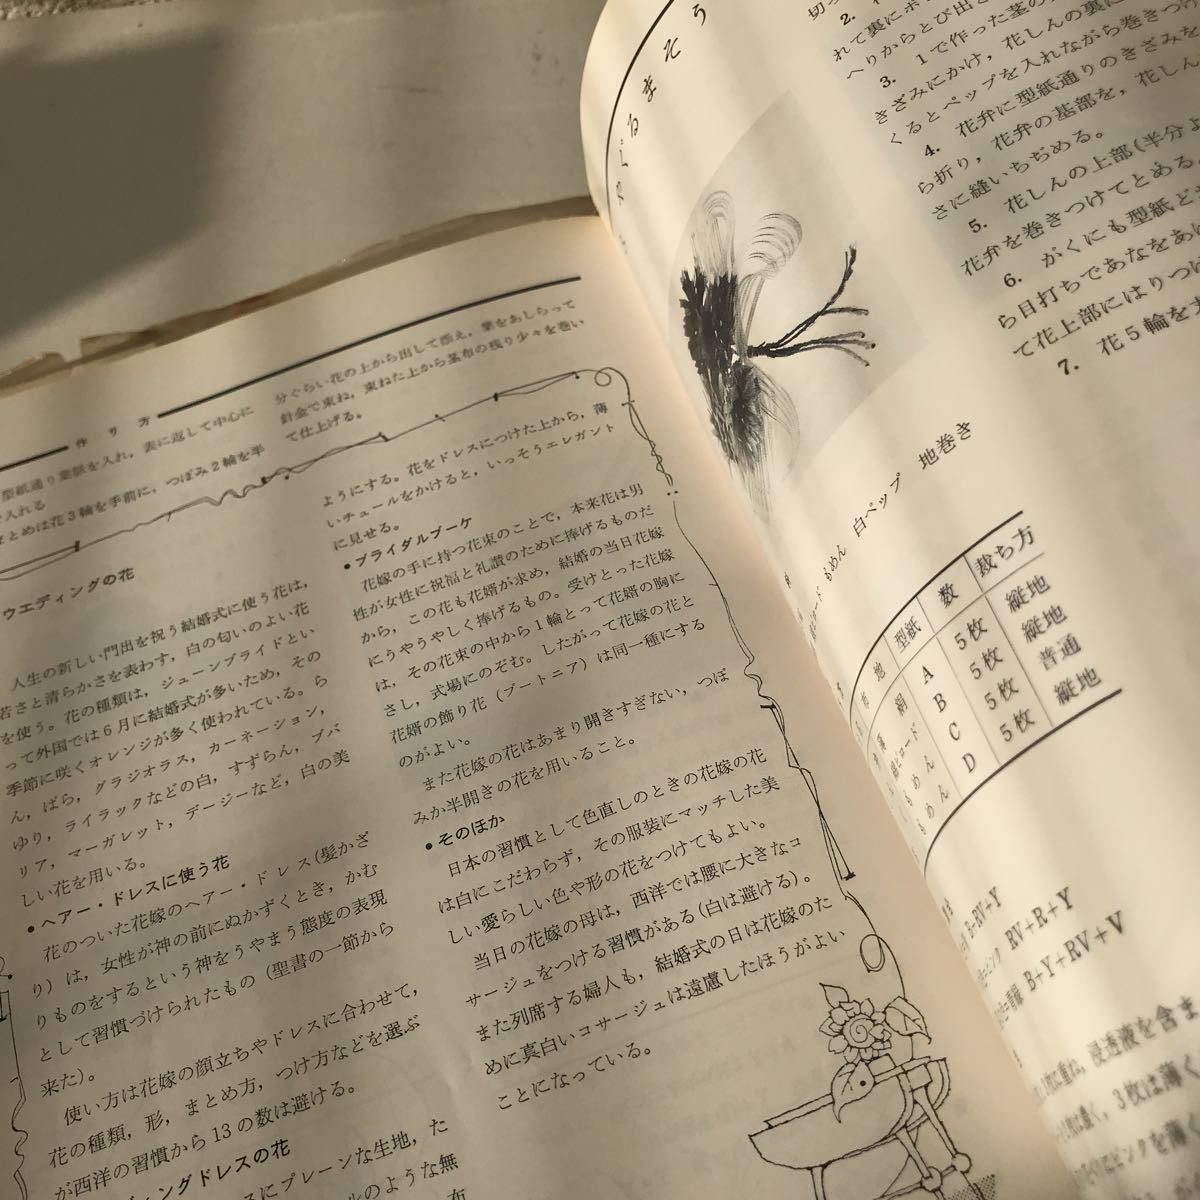 作り方
型紙通り葉脈を入れ，表に返して中心に
で入れる
まとめは花３輪を手前に，つぼみ２輪を半
分ぐらい花の上から出して添え，葉をあしらって
針金で束ね，束ねた上から茎布の残り少々を巻い
て仕上げる。
ウエディングの花
人生の新しい門出を祝う結婚式に使う花は，
若さと清らかさを表わす，白の匂いのよい花
を使う。花の種類は，ジューンブライドとい
って外国では６月に結婚式が多いため，その
季節に咲くオレンジが多く使われている。ら
ん，ばら，グラジオラス，カーネーション，
ゆり，ライラックなどの白，すずらん，ブバ
リア，マーガレット，デージーなど，白の美
しい花を用いる。
●ヘアー・ドレスに使う花
花のついた花嫁のヘアー・ドレス(髪かざ
り）は，女性が神の前にぬかずくとき，かむ
りものをするという神をうやまう態度の表現
として習慣づけられたもの（聖書の一節から
来た）。
使い方は花嫁の顔立ちやドレスに合わせて，
花の種類，形，まとめ方，つけ方などを選ぶ
が西洋の習慣から13の数は避ける。
ディングドレスの花
スにプレーンな生地，た
ールのような無
布
ようにする。花をドレスにつけた上から，薄
いチュールをかけると，いっそうエレガント
に見せる。
●ブライダルブーケ
花嫁の手に持つ花束のことで，本来花は男
性が女性に祝福と礼讃のために捧げるものだ
から，この花も花婿が求め，結婚の当日花嫁
にうやうやしく捧げるもの。受けとった花嫁
は，その花束の中から１輪とって花婿の胸に
さし，式場にのぞむ。したがって花嫁の花と
花婿の飾り花（ブートニア）は同一種にする
のがよい。
また花嫁の花はあまり開きすぎない，つぼ
みか半開きの花を用いること。
●そのほか
日本の習慣として色直しのときの花嫁の花
は白にこだわらず，その服装にマッチした美
しい愛らしい色や形の花をつけてもよい。
当日の花嫁の母は，西洋では腰に大きなコ
サージュをつける習慣がある（白は避ける）。
また列席する婦人も，結婚式の日は花嫁のた
めに真白いコサージュは遠慮したほうがよい
ことになっている。
やぐるまそう
切っ
2.
れて裏にボ
へりからとび出さ
3. 1で作った茎の
きざみにかけ，花しんの裏に
くるとペップを入れながら巻きつけ
4. 花弁に型紙通りのきざみを
ら折り，花弁の基部を，花しん
さに縫いちぢめる。
5. 花しんの上部(半分よ
花弁を巻きつけてとめる。
6. がくにも型紙ど
ら目打ちであなをあ
て花上部にはりつけ
7. 花５輪を
もめん 白ペップ 地巻き
布地 型紙 数 裁ち方
絹 A 5枚 縦地
コード B 5枚 縦地
もめん C 5枚 普通
もめん D 5枚 縦地
B+RV+Y
ピンク RV+R+Y
B+Y+RV+V
重ね，浸透液を含ま
3枚は薄く
ピンクを薄く